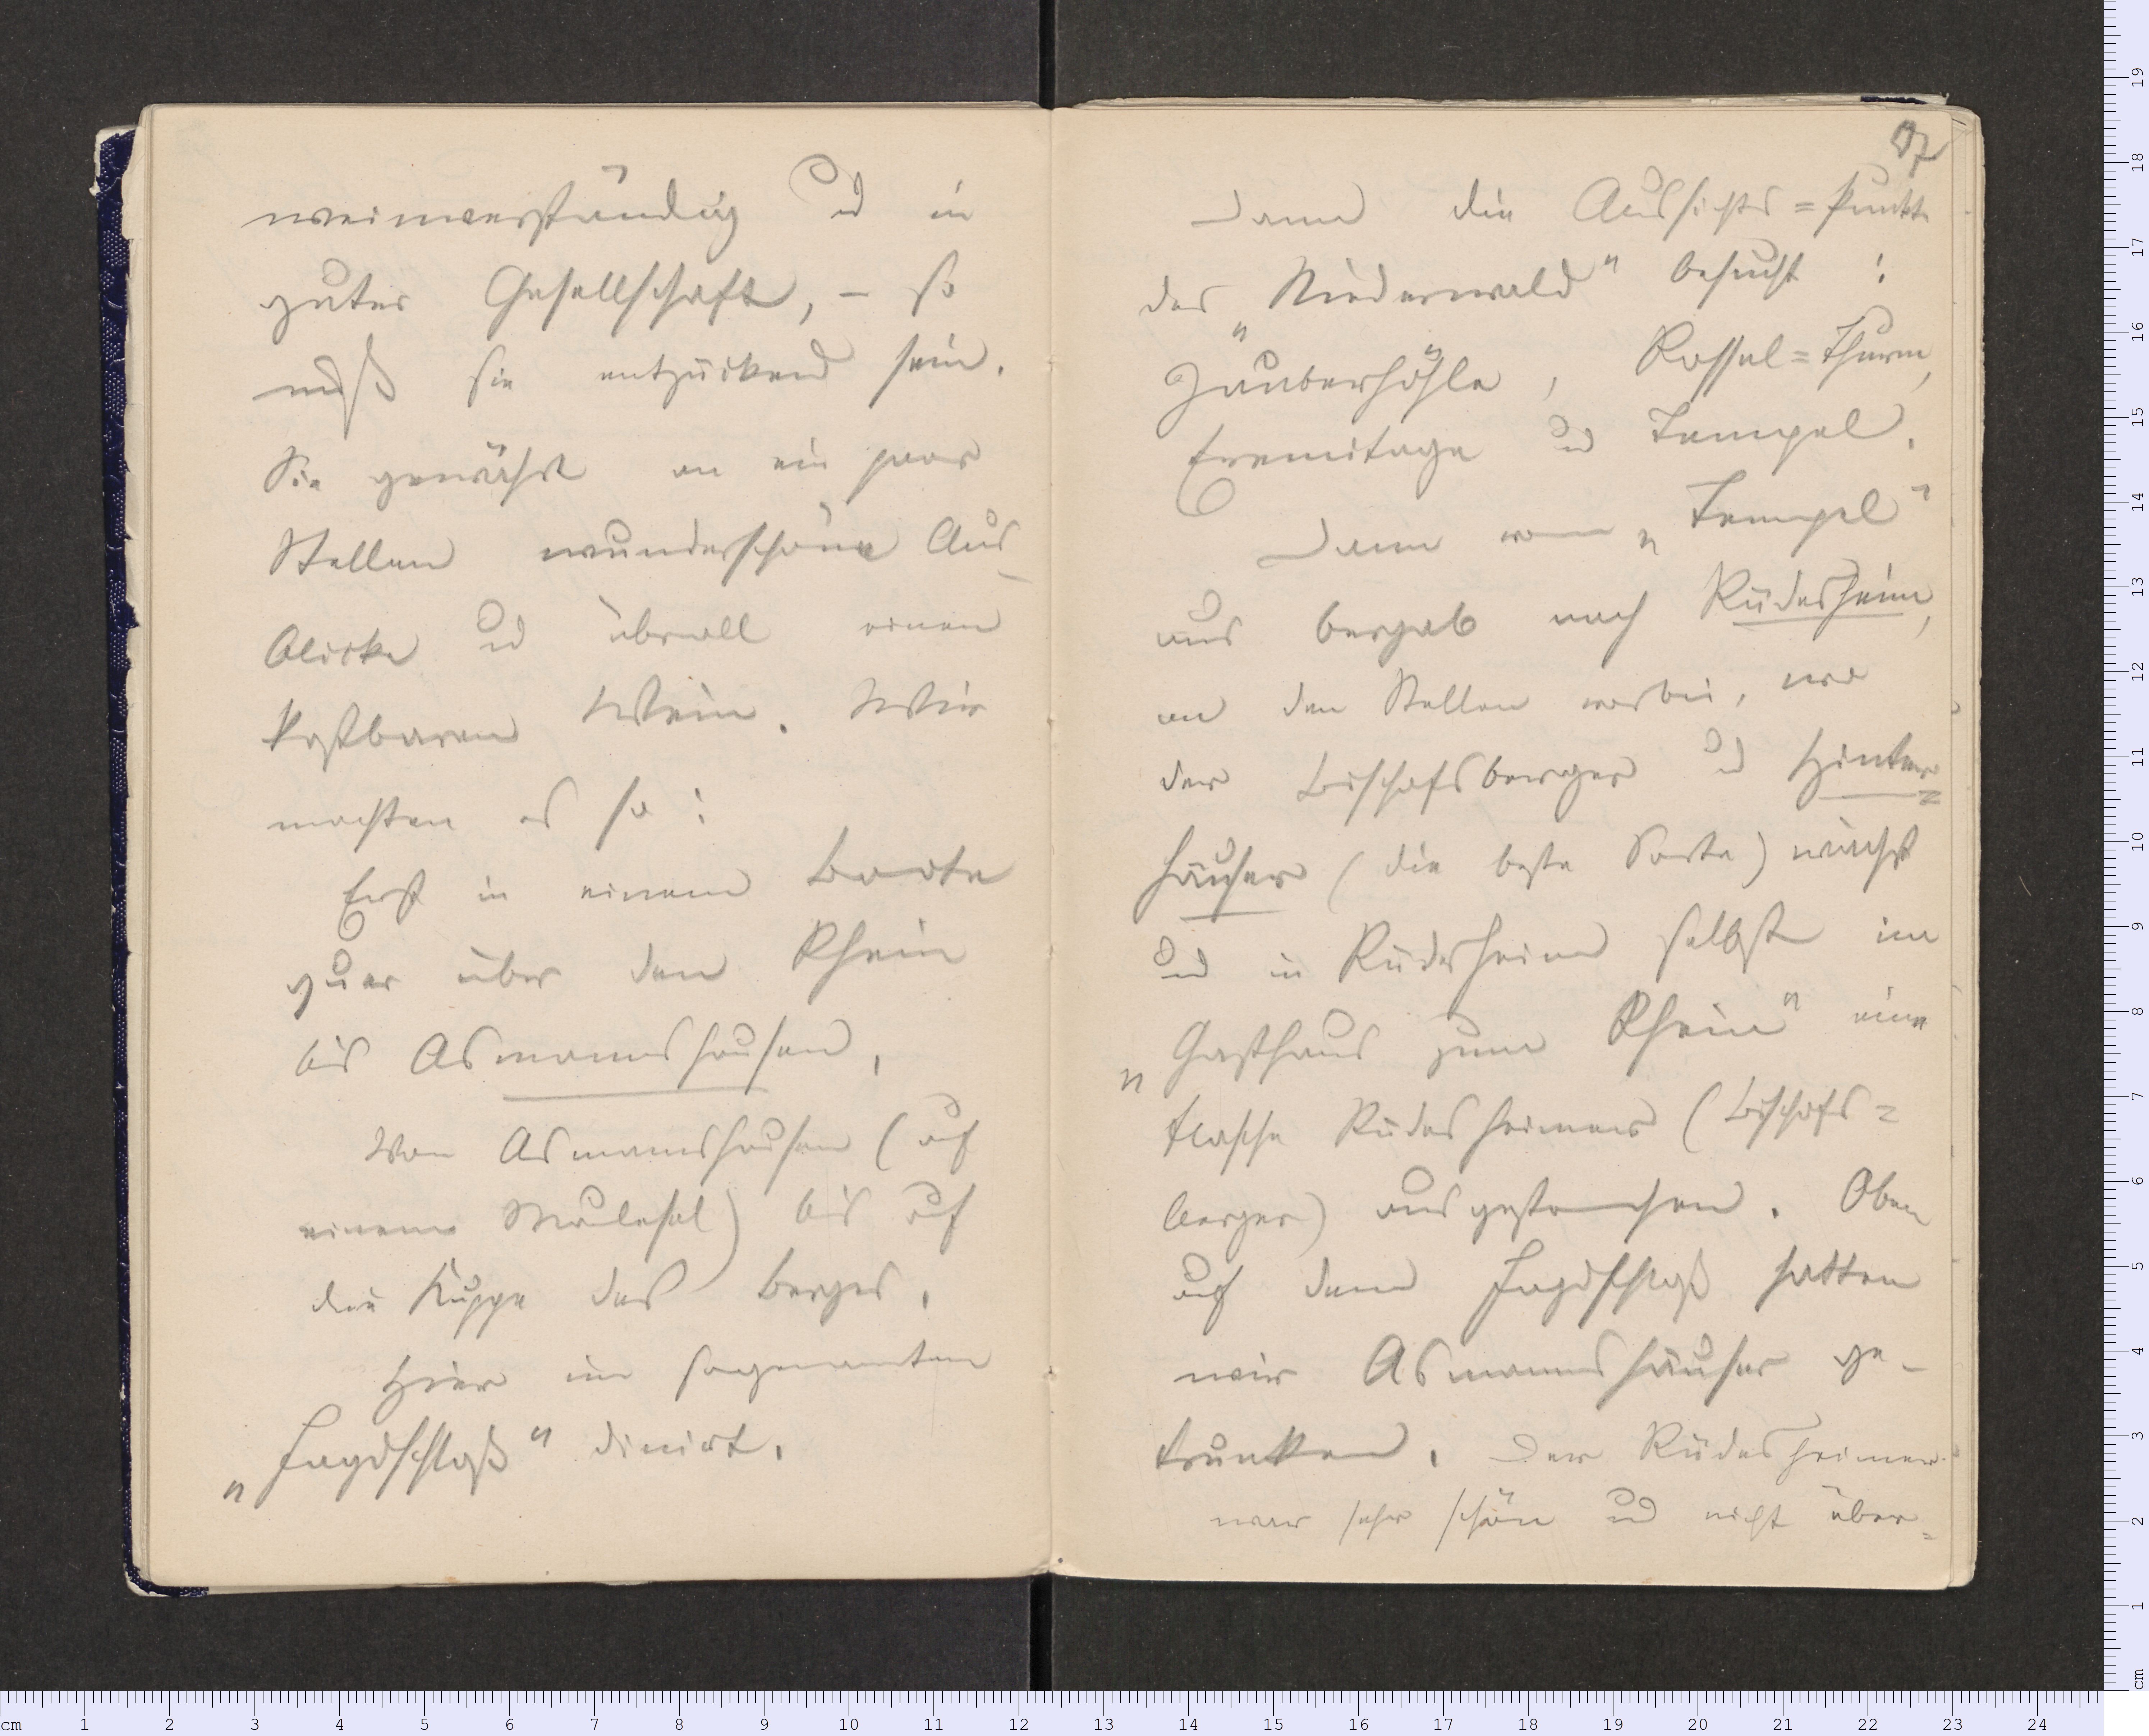 weinverständig und in
guter Gesellschaft, – so
muß sie entzückend sein.
Sie gewährt an ein paar
Stellen wunderschöne Aus-
blicke und überall einen
kostbaren Wein. Wir
machten es so:
Erst in einem Boote
quer über den Rhein
bis Asmannshausen,
Von Asmannshausen (auf
einem Maulesel) bis auf
die Kuppe des Berges.
Hier im sogenannten
„Jagdschloß" dinirt.
37
Dann die Aussichts=Punkte
des „Niederwald" besucht:
„Zauberhöhle", Rossel=Thurm,
Eremitage und Tempel.
Dann vom „Tempel"
aus bergab nach Rüdesheim,
an den Stellen vorbei, wo
der Bischofsberger und Hinter=
häuser (die beste Sorte) wächst
und in Rüdesheim selbst im
„Gasthaus zum Rhein" eine
Flasche Rüdesheimer (Bischofs=
berger) ausgestochen. Oben
auf dem Jagdschloß hatten
wir Asmannshäuser ge-
trunken. Der Rüdesheimer
war sehr schön und nicht über=